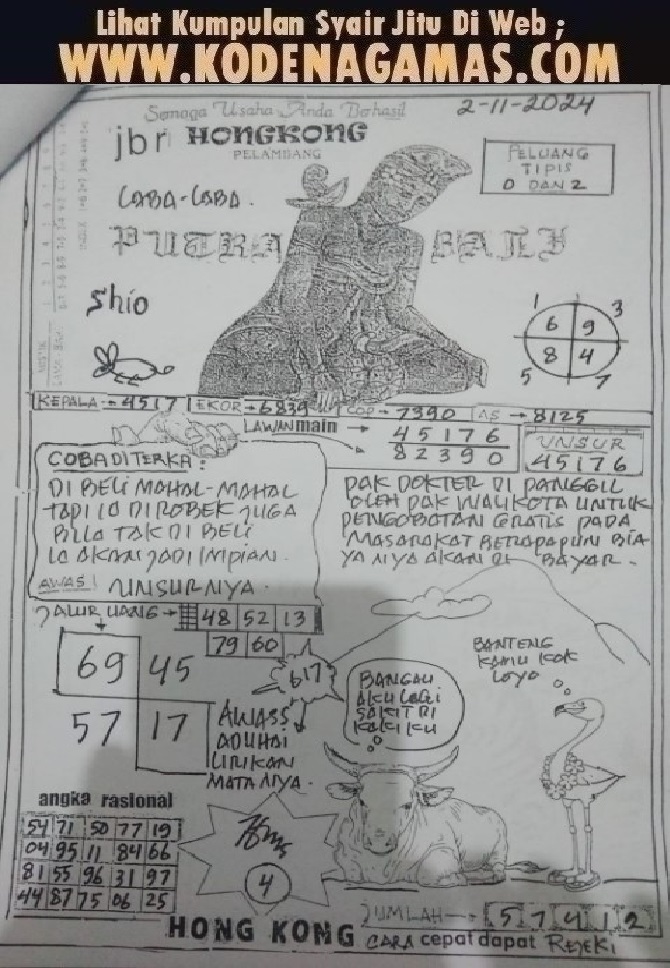 Lihat Kumpulan Syair Jitu Di Web ;
WWW.KODENAGAMAS.COM
Semoga Usaha Anda Berhasil
2-11-2024
jbr HONGKONG
PELAMBANG
PELUANG
TIPIS
0 DAN 2
COBA-COBA.
PUTRA BALI
Shio
1 3
6 9
8 4
5 7
KEPALA → 4517 EKOR → 6839 COP → 7390 AS → 8125
LAWAN main → 45176
82390
UNSUR
45176
COBA DITERKA:
DI BELI MAHAL-MAHAL
TAPI LO DIROBEK JUGA
BILLA TAK DI BELI
LO AKAN JADI IMPIAN.
AWAS! UNSURNYA.
PAK DOKTER DI PANGGIL
OLEH PAK WALIKOTA UNTUK
PENGOBATAN GRATIS PADA
MASARAKAT BERAPAPUN BIA
YA NYA AKAN DI BAYAR.
JALUR UANG → 48 52 13
79 60
69 45
57 17
617
AWASS
ADUHAI
LIRIKAN
MATANYA.
BANGAU
AKU LAGI
SAKIT DI
KAKI KU
BANTENG
KAMU KOK
LOYO
angka rasional
54 71 50 77 19
04 95 11 84 66
81 55 96 31 97
44 87 75 06 25
4
JUMLAH → 5 7 4 1 2
HONG KONG CARA cepat dapat REJEKI